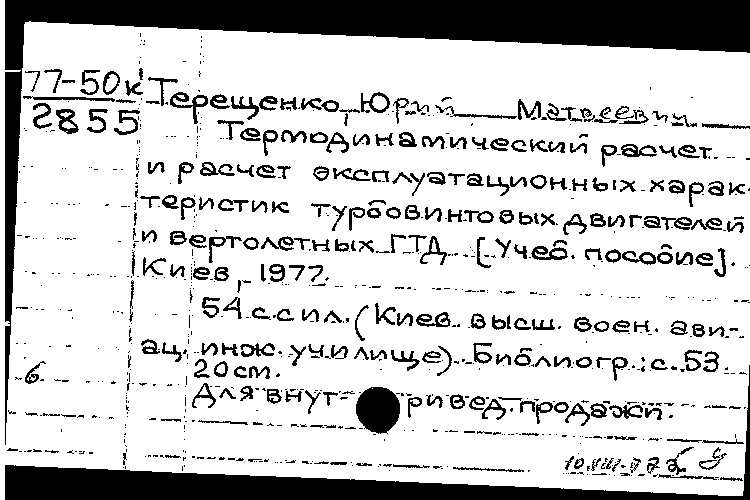 77-50к Терещенко, Юрий Матвеевич
2855
Термодинамический расчет
и расчет эксплуатационных харак-
теристик турбовинтовых двигателей
и вертолетных ГТД. [Учеб. пособие].
Киев, 1977.
54 с. с ил. (Киев. высш. воен. ави-
ац. инж. училище). Библиогр.: с. 53
20 см.
6
Для внут ривед. продажи.
10.VIII.77